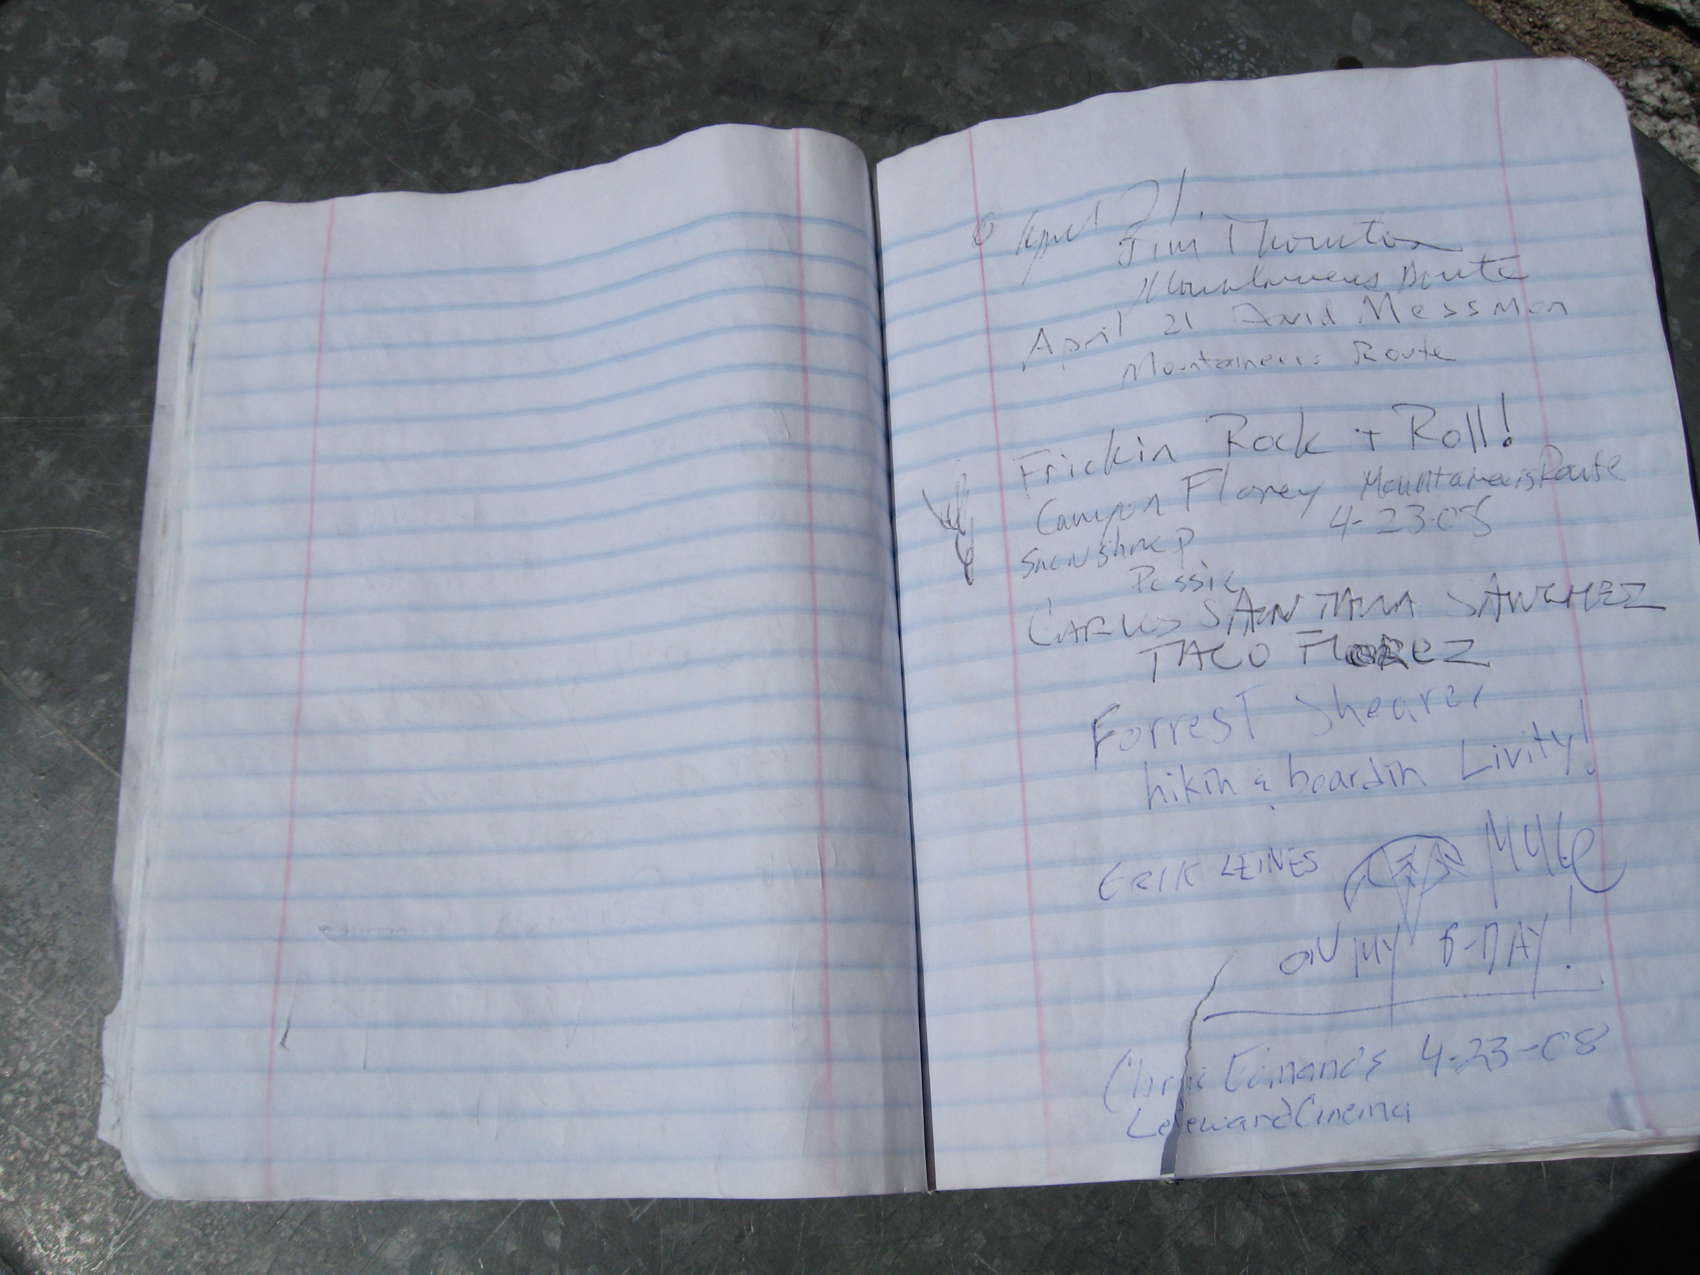 April 21.
Jim Thornton
Mountaineers Route
April 21 David Messman
Mountaineers Route
Frickin Rock + Roll!
Canyon Florey Mountaineers Route
4-23-08
CARLOS SANTANA SANCHEZ
TACO FLOREZ
Forrest Shearer
hikin & boardin Livity!
ERIK LEINES
ON MY B-DAY!
Chris Edmands 4-23-08
Leeward Cinema